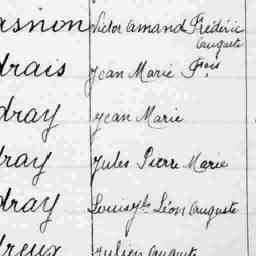 asnon Victor Amand Frédéric
Auguste
drais Jean Marie Fois
dray Jean Marie
dray Jules Pierre Marie
dray Léon Auguste
dreux Julien Auguste